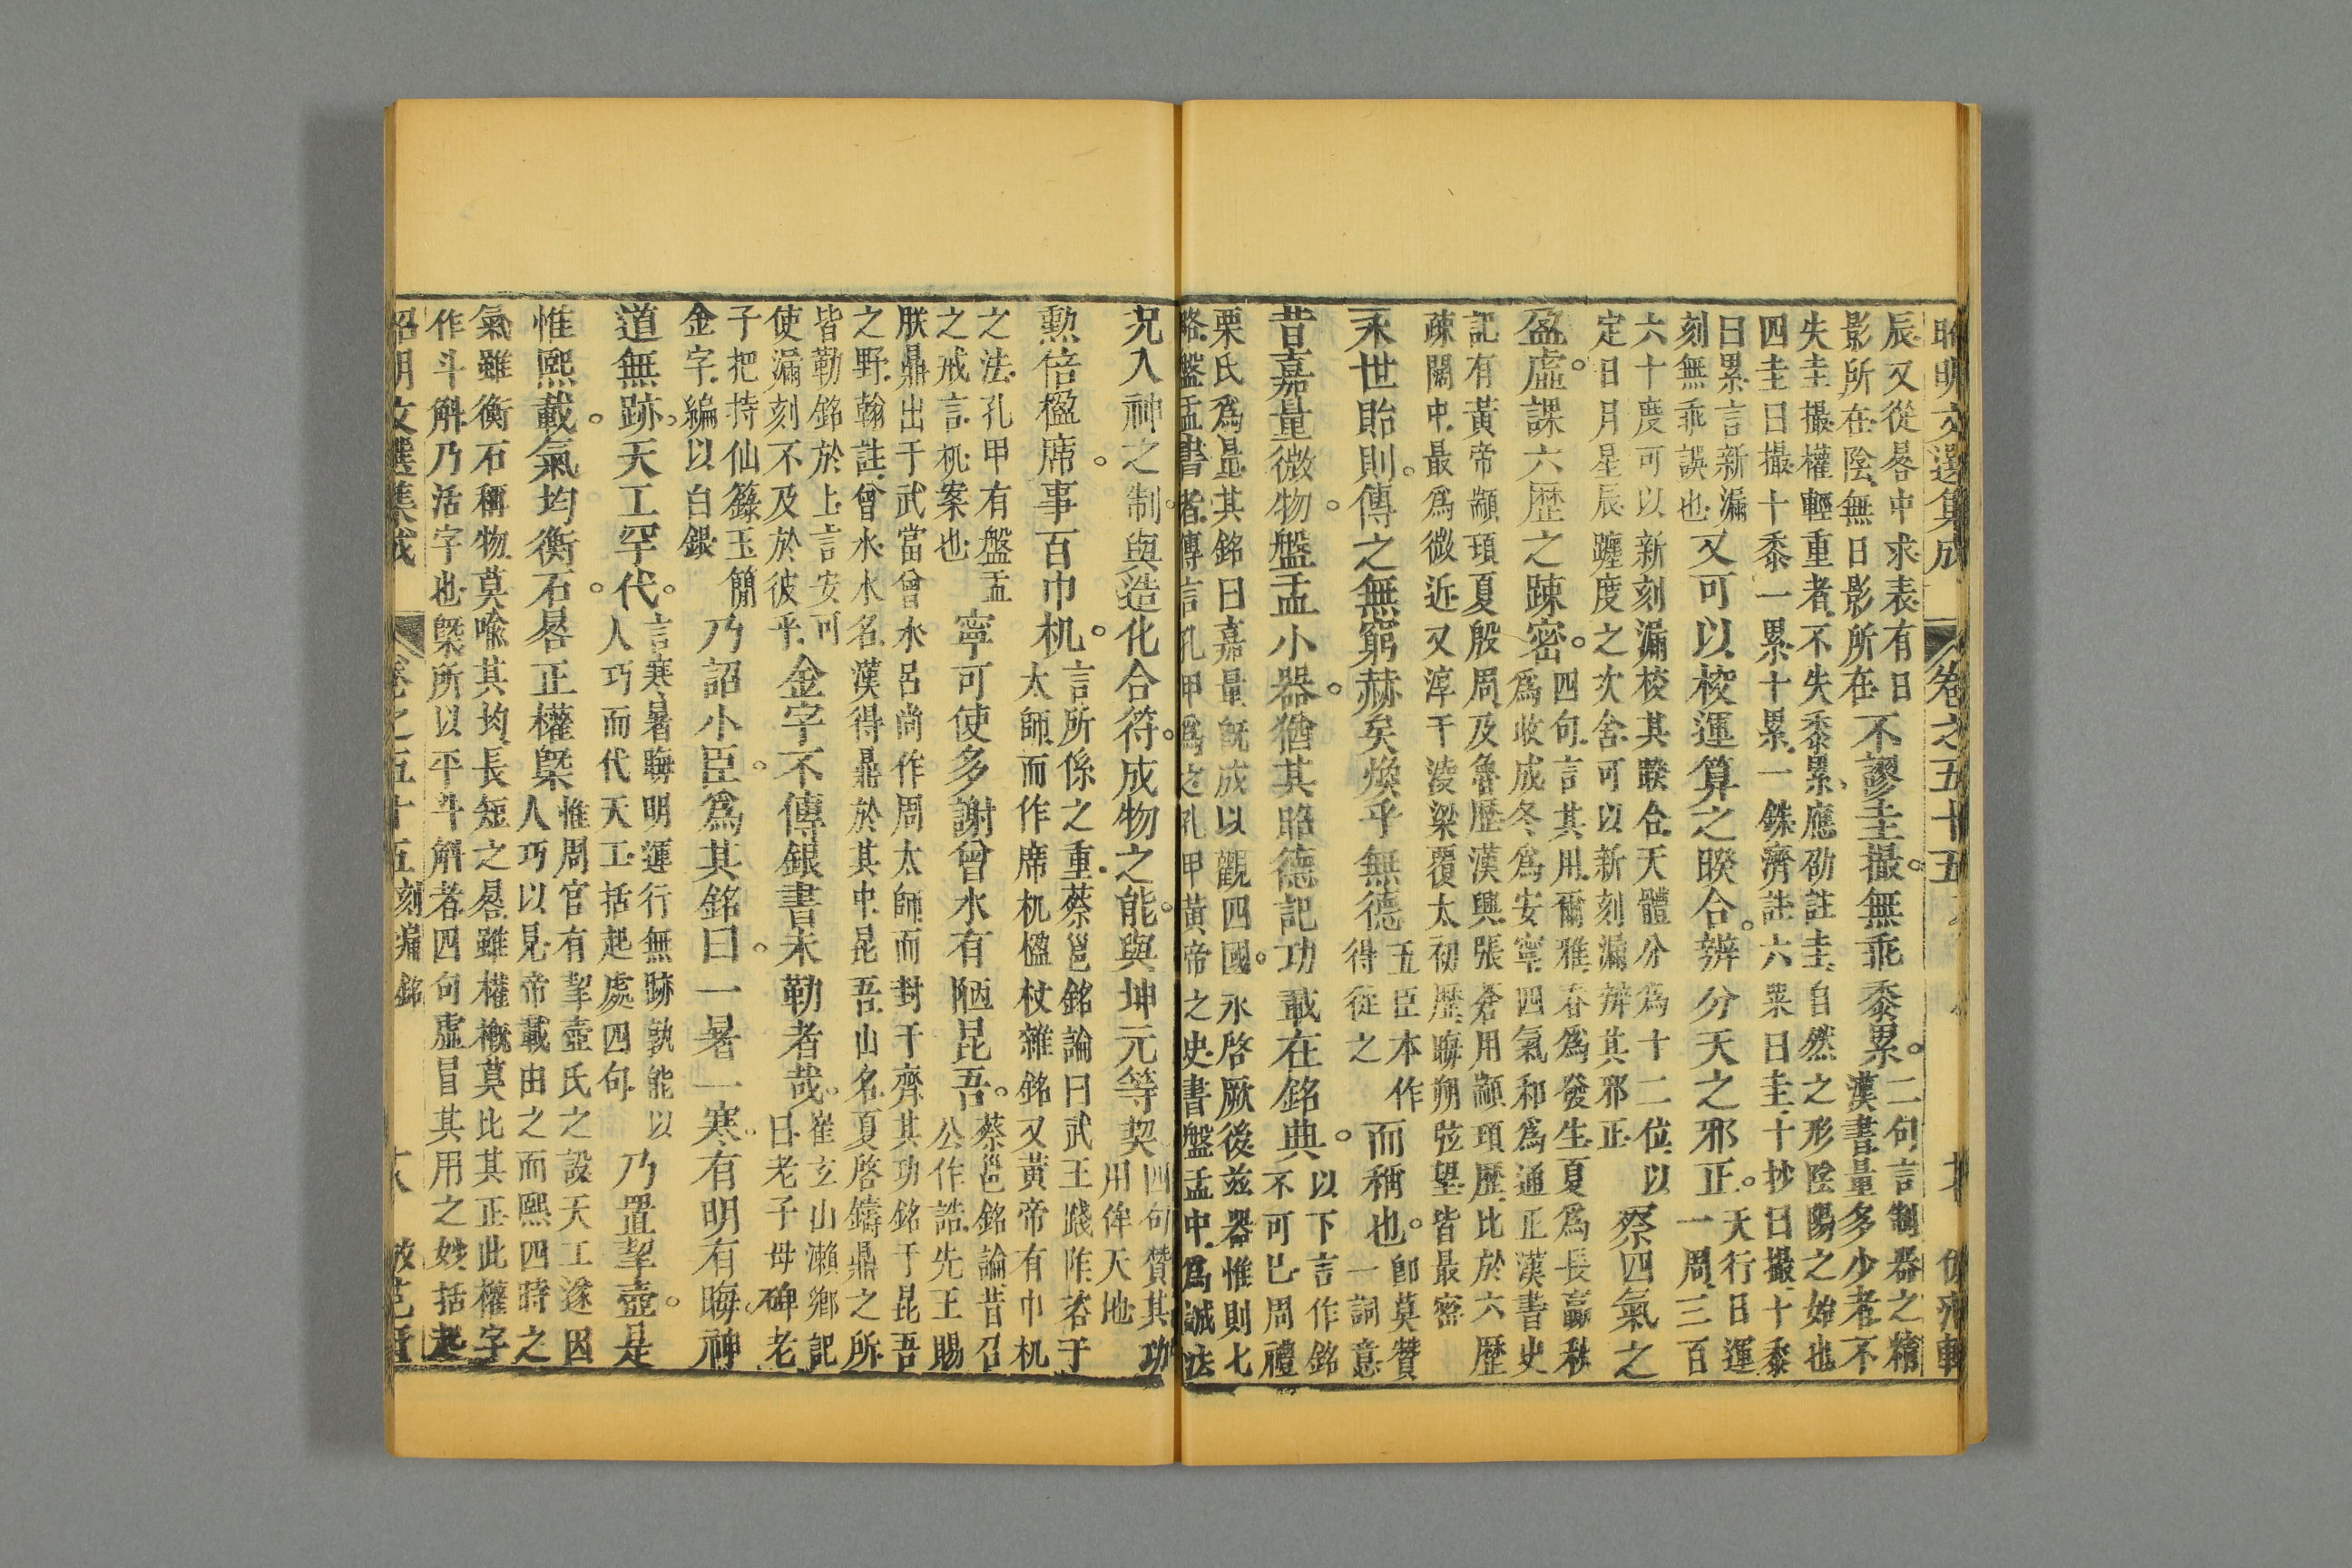 昭明文選集成 卷之五十五
辰又從晷中求表有日
影所在陰無日影所在
不謬圭撮無乖黍累
二句言制器之精
漢書量多少者不
失圭撮權輕重者不失黍累應劭註圭自然之形陰陽之始也
四圭曰撮十黍一累十累一銖濟註六粟曰圭十抄曰撮十黍
曰累言新漏
刻無乖誤也
又可以校運算之睽合辨分天之邪正
天行日運
一周三百
六十度可以新刻漏校其睽合天體分爲十二位以
定日月星辰躔度之次舍可以新刻漏辨其邪正
察四氣之
盈虛課六歷之踈密
四句言其用爾雅春爲發生夏爲長贏秋
爲收成冬爲安寧四氣和爲通正漢書史
記有黃帝顓頊夏殷周及魯歷漢興張蒼用顓頊歷比於六歷
疎闊中最爲微近又淳于淩梁覆太初歷晦朔弦望皆最密
永世貽則傳之無窮赫矣煥乎無德
五臣本作
得從之
而稱也
卽莫贊
一詞意
昔嘉量微物盤盂小器猶其昭德記功載在銘典
以下言作銘
不可已周禮
栗氏爲量其銘曰嘉量旣成以觀四國永啓厥後茲器惟則七
略盤盂書者傳言孔甲爲之孔甲黃帝之史書盤盂中爲誡法
況入神之制與造化合符成物之能與坤元等契
四句贊其功
用侔天地
勲倍楹席事百巾机
言所係之重蔡邕銘論曰武王踐阼咨于
太師而作席机楹杖雜銘又黃帝有巾机
之法孔甲有盤盂
之戒言机案也
寧可使多謝曾水有陋昆吾
蔡邕銘論昔召
公作誥先王賜
朕鼎出于武當曾水呂尚作周太師而封于齊其功銘于昆吾
之野翰註曾水水名漢得鼎於其中昆吾山名夏啓鑄鼎之所
皆勒銘於上言安可
使漏刻不及於彼乎
金字不傳銀書未勒者哉
崔玄山瀨鄉記
曰老子母碑老
子把持仙籙玉簡
金字編以白銀
乃詔小臣爲其銘曰一暑一寒有明有晦神
道無跡天工罕代
言寒暑晦明運行無跡孰能以
人巧而代天工括起處四句
乃置挈壺是
惟熙載氣均衡石晷正權槩
惟周官有挈壺氏之設天工遂因
人巧以見帝載由之而熙四時之
氣雖衡石稱物莫喩其均長短之晷雖權槪莫比其正此權字
作斗斛乃活字也槩所以平斗斛者四句虛冒其用之妙括起
昭明文選集成 卷之五十五刻漏銘